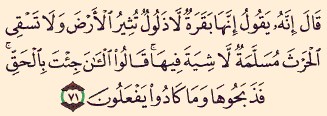 قَالَ إِنَّهُۥ يَقُولُ إِنَّهَا بَقَرَةٌ لَّا ذَلُولٌ تُثِيرُ ٱلْأَرْضَ وَلَا تَسْقِى
ٱلْحَرْثَ مُسَلَّمَةٌ لَّا شِيَةَ فِيهَا ۚ قَالُوا۟ ٱلْـَٰٔنَ جِئْتَ بِٱلْحَقِّ ۚ
فَذَبَحُوهَا وَمَا كَادُوا۟ يَفْعَلُونَ ٧١